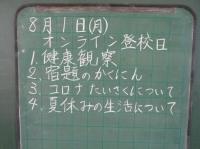 8月1日(月)
オンライン登校日
1. 健康観察
2. 宿題のかくにん
3. コロナたいさくについて
4. 夏休みの生活について